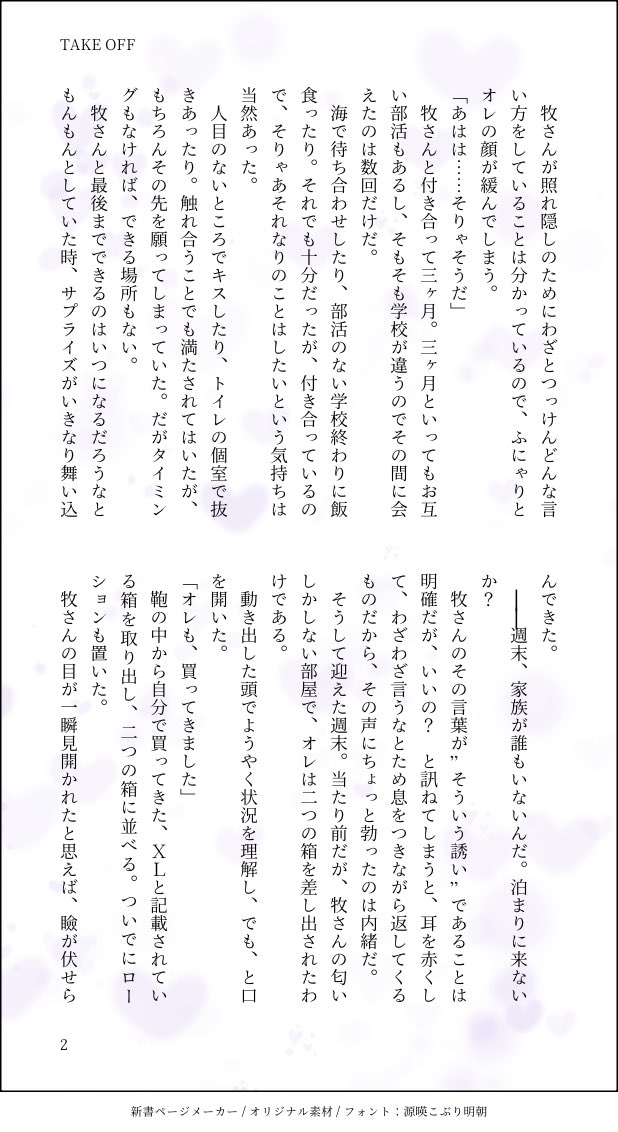 TAKE OFF
　牧さんが照れ隠しのためにわざとつっけんどんな言
い方をしていることは分かっているので、ふにゃりと
オレの顔が緩んでしまう。
「あはは……そりゃそうだ」
　牧さんと付き合って三ヶ月。三ヶ月といってもお互
い部活もあるし、そもそも学校が違うのでその間に会
えたのは数回だけだ。
　海で待ち合わせしたり、部活のない学校終わりに飯
食ったり。それでも十分だったが、付き合っているの
で、そりゃあそれなりのことはしたいという気持ちは
当然あった。
　人目のないところでキスしたり、トイレの個室で抜
きあったり。触れ合うことでも満たされてはいたが、
もちろんその先を願ってしまっていた。だがタイミン
グもなければ、できる場所もない。
　牧さんと最後までできるのはいつになるだろうなと
もんもんとしていた時、サプライズがいきなり舞い込
んできた。
　――週末、家族が誰もいないんだ。泊まりに来ない
か？
　牧さんのその言葉が”そういう誘い”であることは
明確だが、いいの？　と訊ねてしまうと、耳を赤くし
て、わざわざ言うなとため息をつきながら返してくる
ものだから、その声にちょっと勃ったのは内緒だ。
　そうして迎えた週末。当たり前だが、牧さんの匂い
しかしない部屋で、オレは二つの箱を差し出されたわ
けである。
　動き出した頭でようやく状況を理解し、でも、と口
を開いた。
「オレも、買ってきました」
　鞄の中から自分で買ってきた、ＸＬと記載されてい
る箱を取り出し、二つの箱に並べる。ついでにロー
ションも置いた。
　牧さんの目が一瞬見開かれたと思えば、瞼が伏せら
2
新書ページメーカー / オリジナル素材 / フォント：源暎こぶり明朝